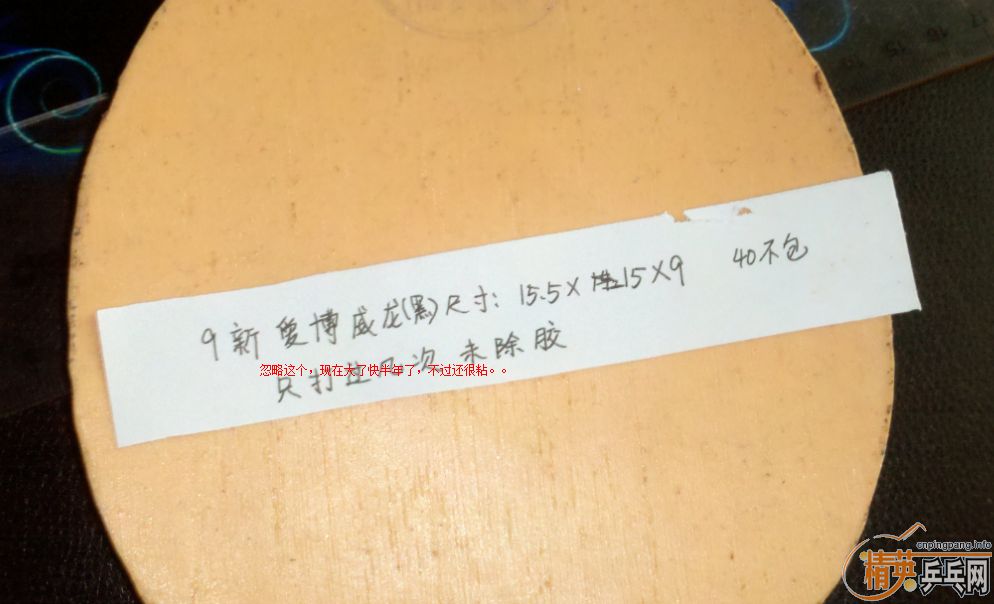 9新 爱博威龙(黑)尺寸: 15.5X 15X9 40不包
只打过几次 未除胶
忽略这个，现在大了快半年了，不过还很粘。。
cnpingpang.info
精英乒乓网